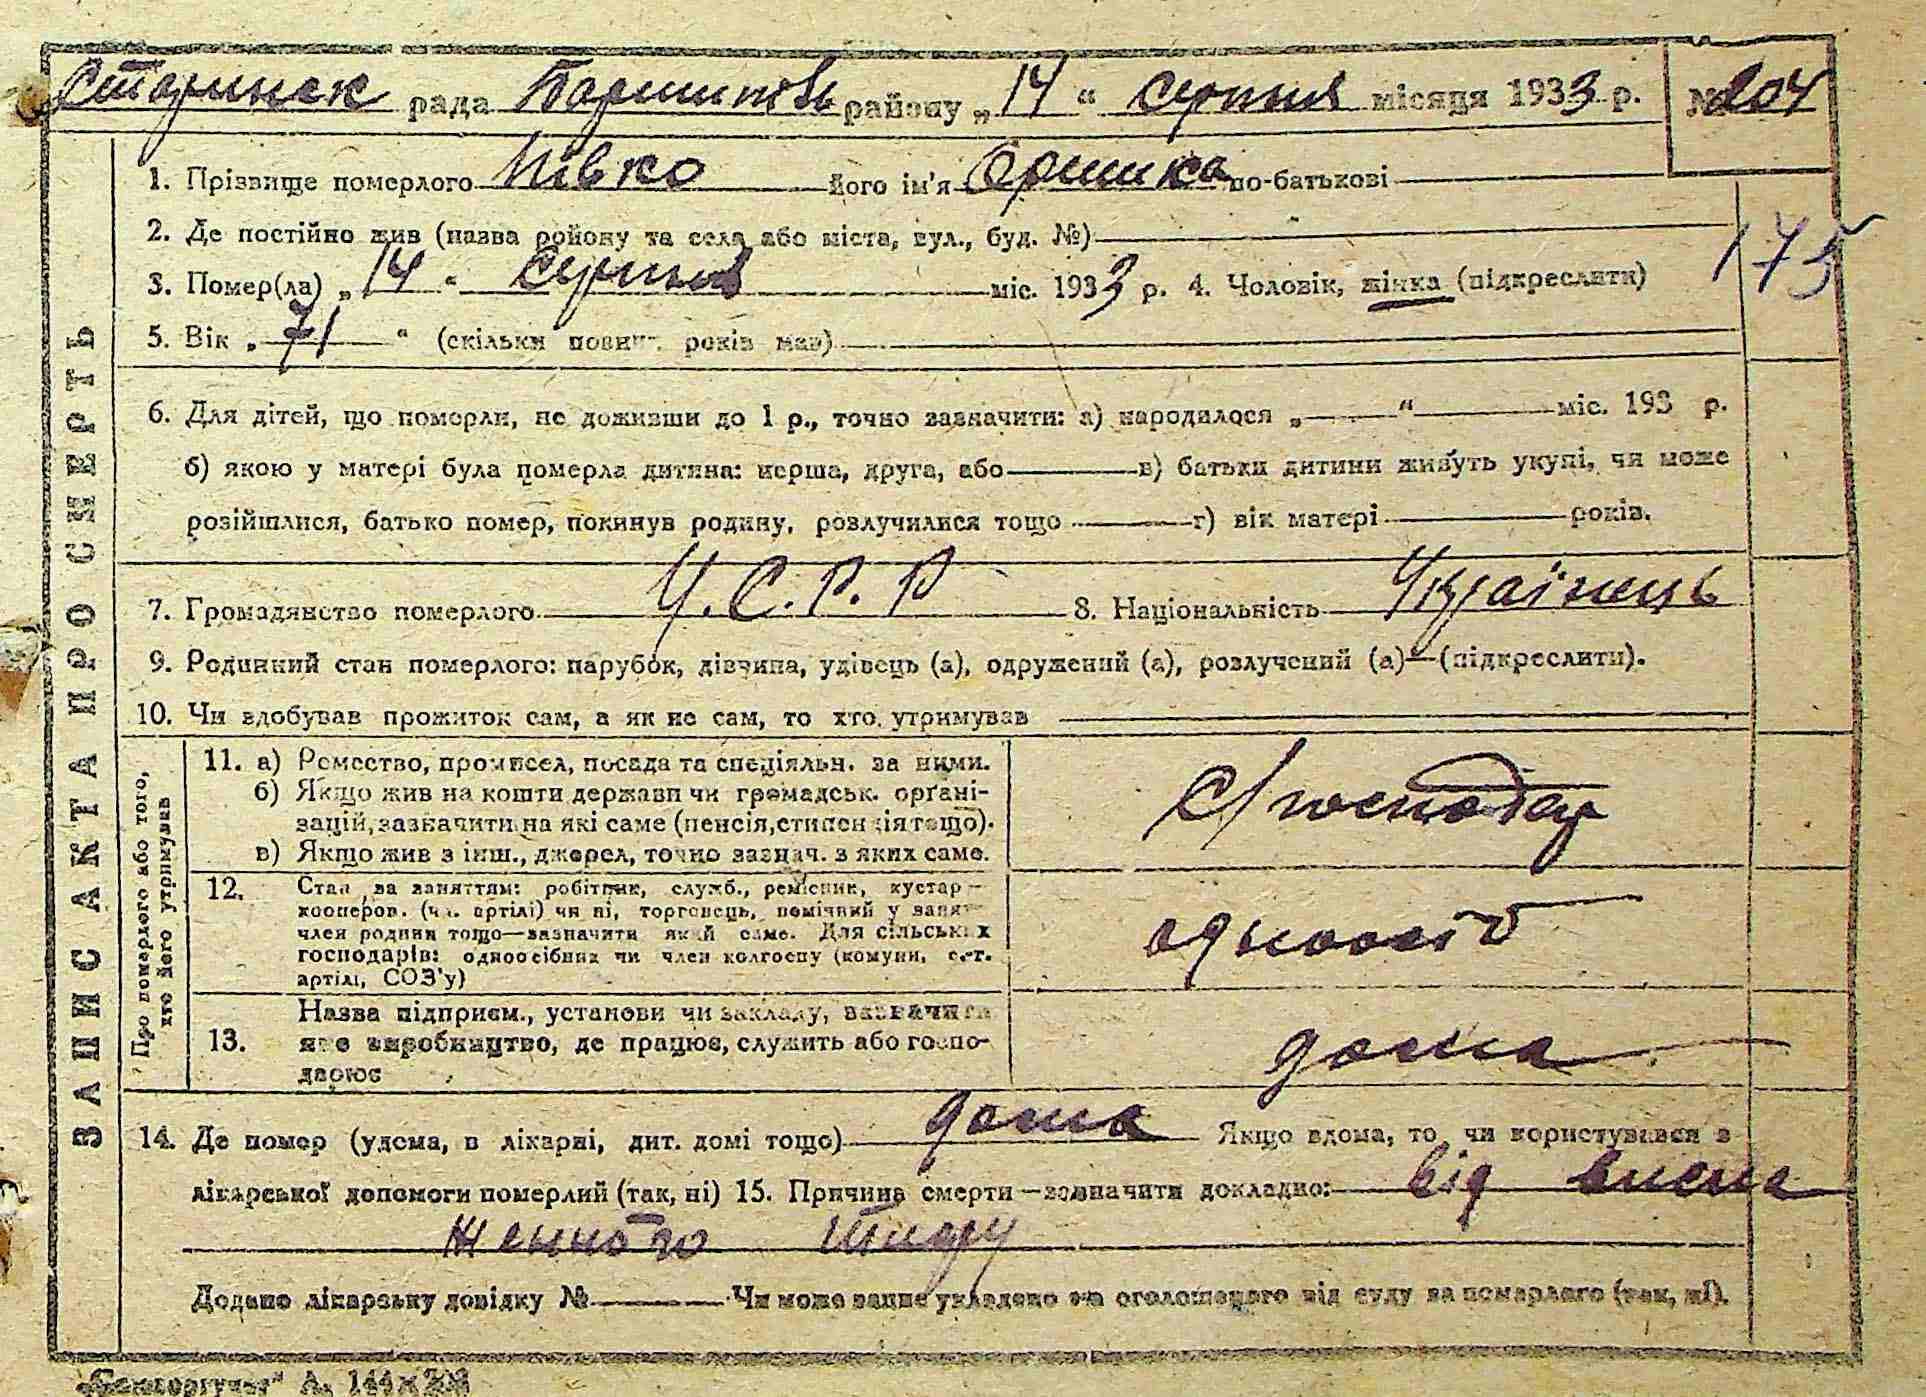 Старинск рада Баришповськ району „14“ серпня місяця 1933 р. № 204
1. Прізвище померлого Півко його ім'я Оришка по-батькові
175
2. Де постійно жив (назва ройону та села або міста, вул., буд. №)
3. Помер(ла) „14“ серпня міс. 1933 р. 4. Чоловік, жінка (підкреслити)
5. Вік „71“ (скільки повних років мав)
6. Для дітей, що померли, не доживши до 1 р., точно зазначити: а) народилося „ “ міс. 193 р.
б) якою у матері була померла дитина: перша, друга, або в) батьки дитини живуть укупі, чи може
розійшлися, батько помер, покинув родину, розлучилися тощо г) вік матері років.
7. Громадянство померлого У.С.Р.Р 8. Національність Українець
9. Родинний стан померлого: парубок, дівчина, удівець (а), одружений (а), розлучений (а)—(підкреслити).
10. Чи здобував прожиток сам, а як не сам, то хто утримував
ЗАПИС АКТА ПРО СМЕРТЬ
Про померлого або того,
хто його утримував
11. а) Ремество, промисел, посада та спеціяльн. за ними.
б) Якщо жив на кошти держави чи громадськ. орґані-
зацій, зазначити на які саме (пенсія, стипендія тощо).
в) Якщо жив з інш., джерел, точно зазнач. з яких саме.
с/господар
12. Стан за заняттям: робітник, служб., ремісник, кустар—
кооперов. (чл. артілі) чи ні, торговець, помічний у занят.
член родини тощо—зазначити який саме. Для сільських
господарів: одноосібник чи член колгоспу (комуни, с.-г.
артілі, СОЗ'у)
одноосіб
13. Назва підприєм., установи чи закладу, зазначити
яке виробництво, де працює, служить або госпо-
дарює
дома
14. Де помер (удома, в лікарні, дит. домі тощо) дома Якщо вдома, то чи користувався з
лікарської допомоги померлий (так, ні) 15. Причина смерти—зазначити докладно: від
тифу
Додано лікарську довідку № Чи може запис укладено на оголошеного від суду за померлого (так, ні).